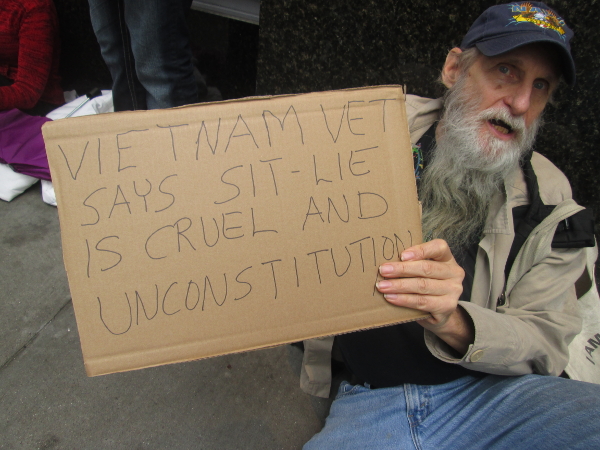 VIETNAM VET
SAYS SIT-LIE
IS CRUEL AND
UNCONSTITUTION